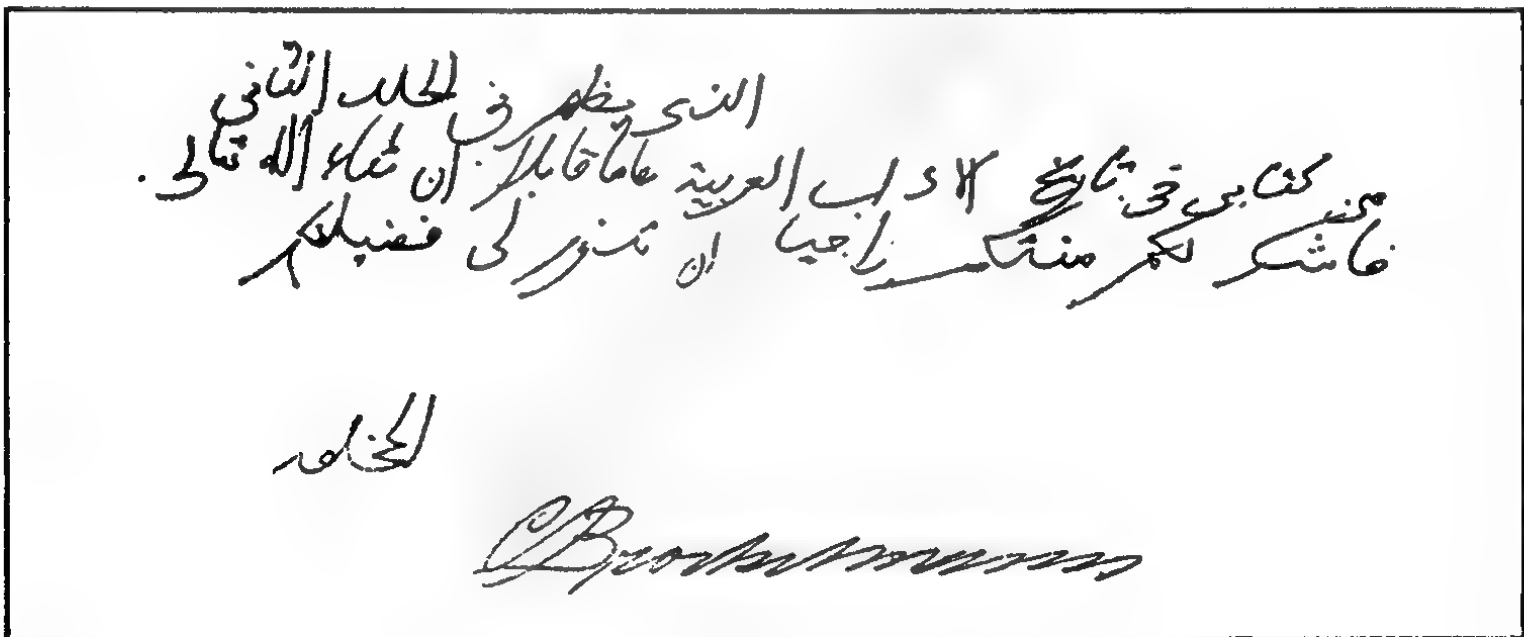 الذي يظهر في المجلد الثاني
من كتابي في تاريخ الآداب العربية عاما قابلا ان شاء الله تعالى.
فاشكر لكم منتكم راجيا ان لي فضيلتكم
المخلص
C Brockelmann